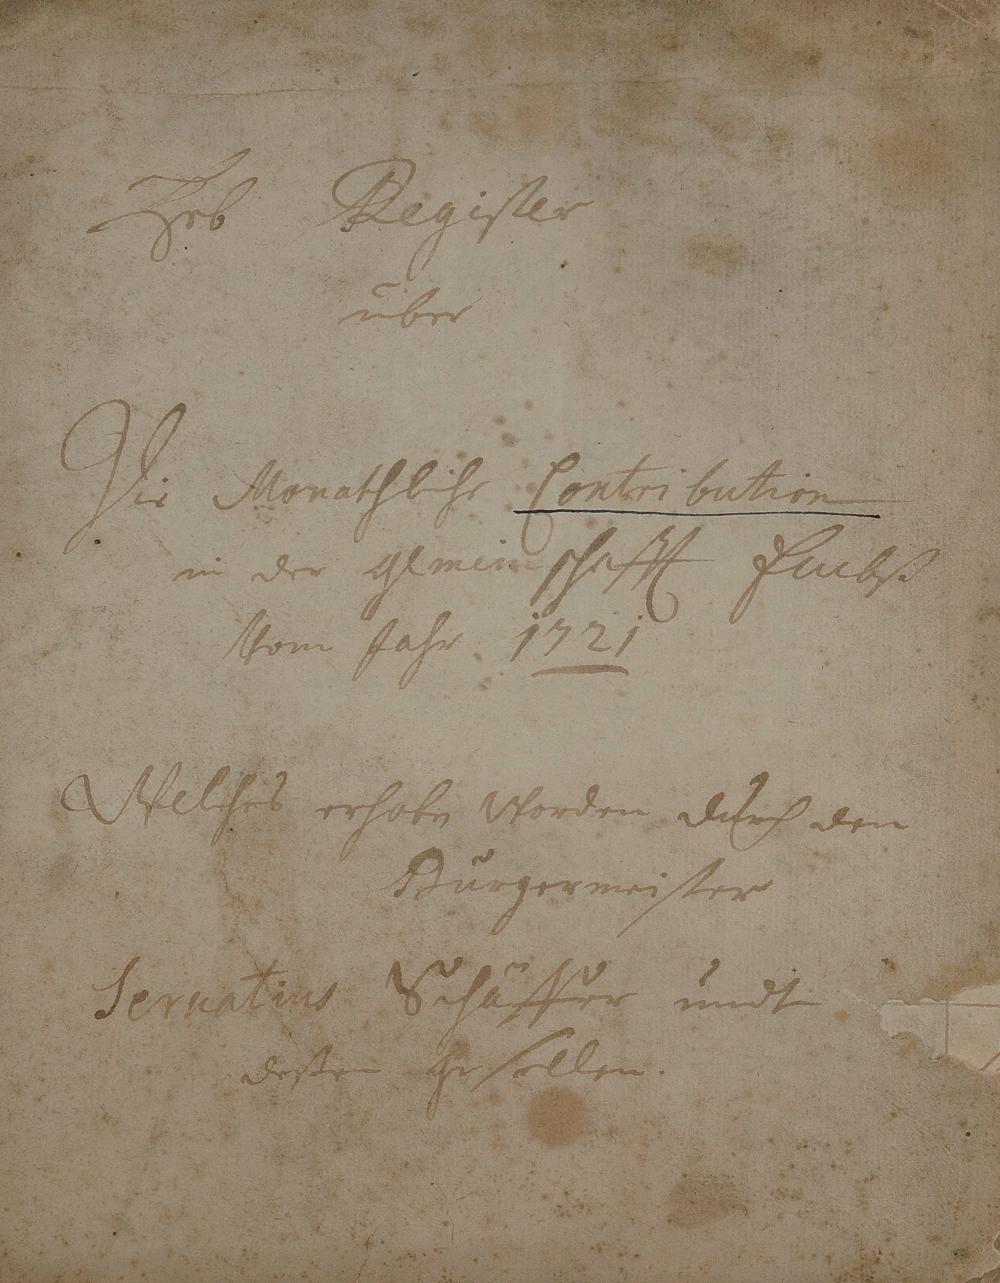 Heb Register
über
Die Monathliche Contribution
in der gemeinschafft
Vom Jahr 1721
Welches erhoben worden durch den
Bürgermeister
Servatius Schäffer undt
deßen gesellen.